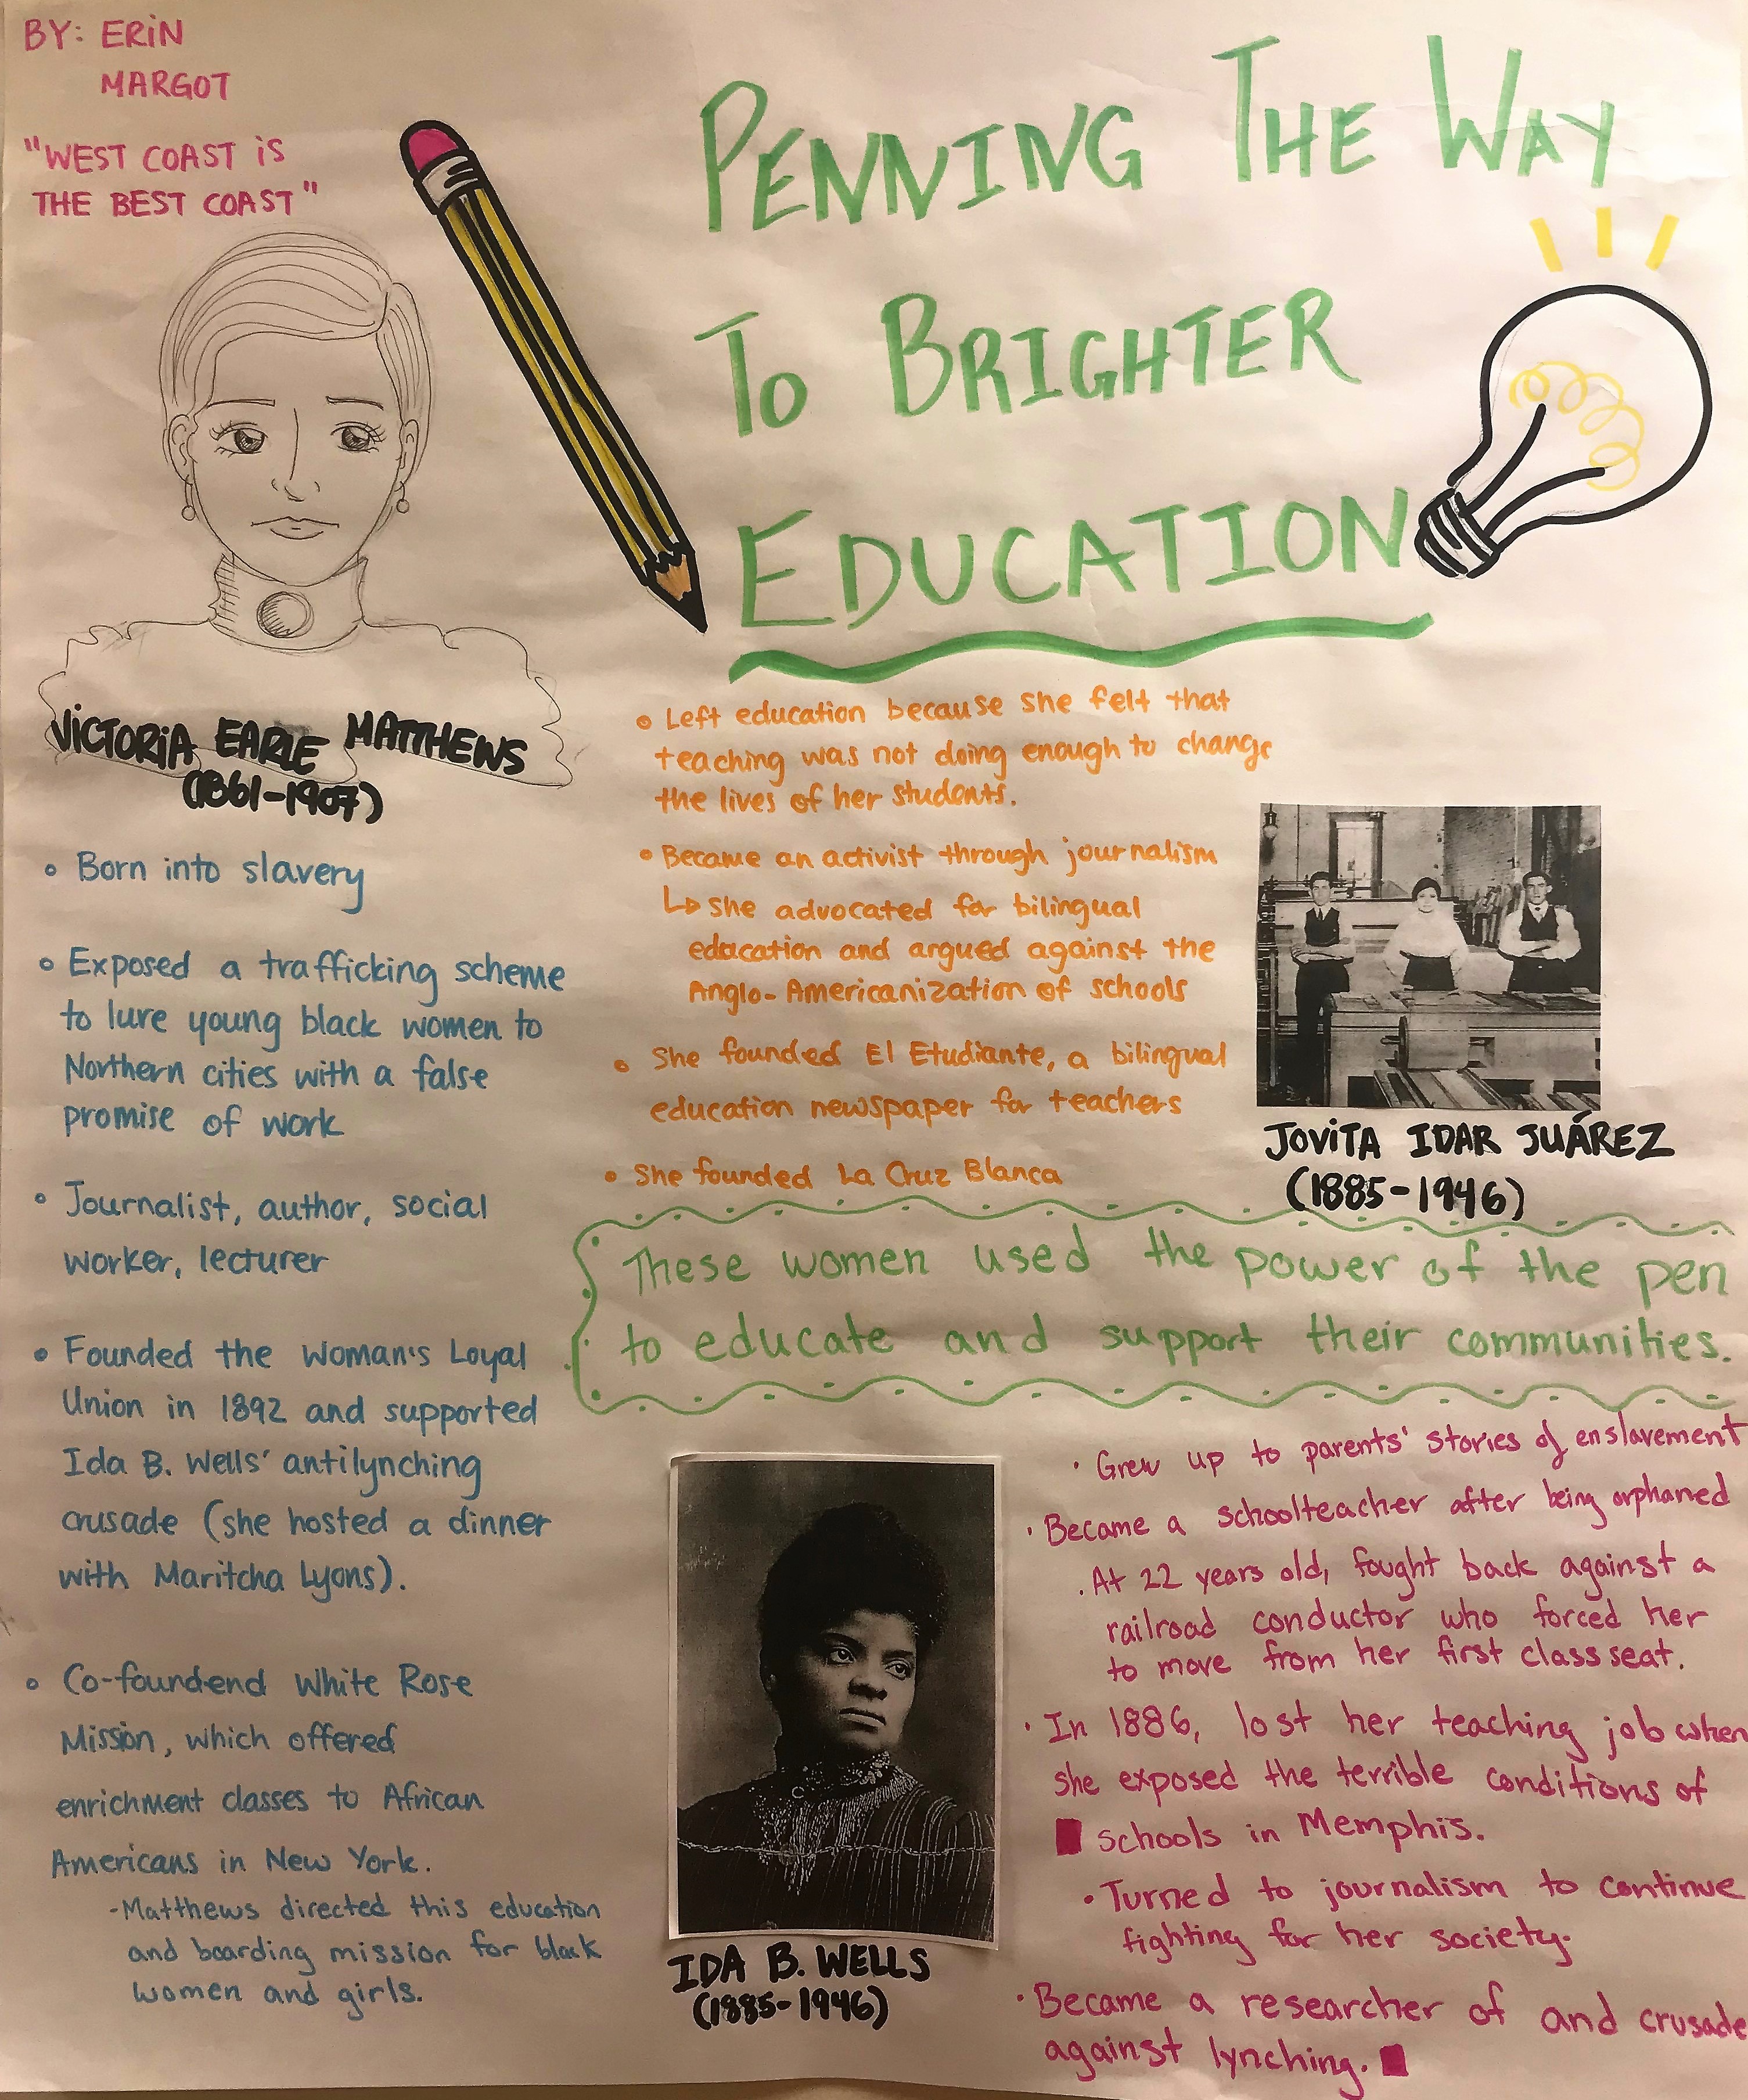 BY: ERiN
MARGOT
"WEST COAST iS
THE BEST COAST"
PENNING THE WAY
TO BRIGHTER
EDUCATION
ViCTORiA EARLE MATTHEWS
(1861-1907)
• Born into slavery
• Exposed a trafficking scheme
to lure young black women to
Northern cities with a false
promise of work
• Journalist, author, social
worker, lecturer
• Founded the Woman's Loyal
Union in 1892 and supported
Ida B. Wells' antilynching
crusade (she hosted a dinner
with Maritcha Lyons).
• Co-foundend White Rose
Mission, which offered
enrichment classes to African
Americans in New York.
-Matthews directed this education
and boarding mission for black
women and girls.
• Left education because she felt that
teaching was not doing enough to change
the lives of her students.
• Became an activist through journalism
↳ she advocated for bilingual
edacation and argued against the
Anglo-Americanization of schools
• She founded El Etudiante, a bilingual
education newspaper for teachers
• She founded La Cruz Blanca
JOViTA IDAR JUÁREZ
(1885-1946)
These women used the power of the pen
to educate and support their communities.
IDA B. WELLS
(1885-1946)
• Grew up to parents' stories of enslavement
• Became a schoolteacher after being orphaned
• At 22 years old, fought back against a
railroad conductor who forced her
to move from her first class seat.
• In 1886, lost her teaching job when
she exposed the terrible conditions of
schools in Memphis.
• Turned to journalism to continue
fighting for her society.
• Became a researcher of and crusade
against lynching.